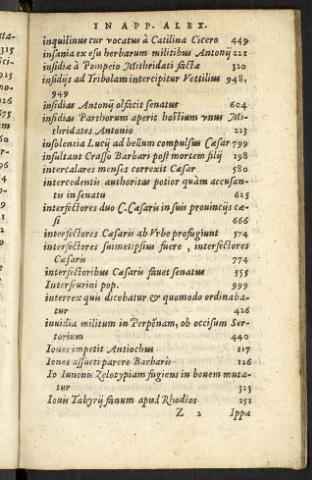 IN APP. ALEX.
inquilinus cur vocatus à Catilina Cicero 449
insania ex esu herbarum militibus Antonij 221
insidiæ à Pompeio Mithridati factæ 320
insidijs ad Tribolam intercipitur Vettilius 948,
949
insidias Antonij olfacit senatus 604
insidias Parthorum aperit hostium vnus Mi-
thridates Antonio 223
insolentia Lucij ad bellum compulsus Cæsar 799
insultant Crasso Barbari post mortem filij 198
intercalares menses correxit Cæsar 580
intercedentis authoritas potior quàm accusan-
tis in senatu 615
interfectores duo C. Cæsaris in suis prouincijs cæ-
si 666
interfectores Cæsaris ab Vrbe profugiunt 574
interfectores suimetipsius fuere, interfectores
Cæsaris 774
interfectoribus Cæsaris fauet senatus 555
Interfrurini pop. 999
interrex quis dicebatur & quomodo ordinaba-
tur 426
inuidia militum in Perpēnam, ob occisum Ser-
torium 440
Iones impetit Antiochus 117
Iones assueti parere Barbaris 126
Io Iunonis Zelotypiam fugiens in bouem muta-
tur 323
Iouis Tabyrij fanum apud Rhodios 251
Z 2 Ippa